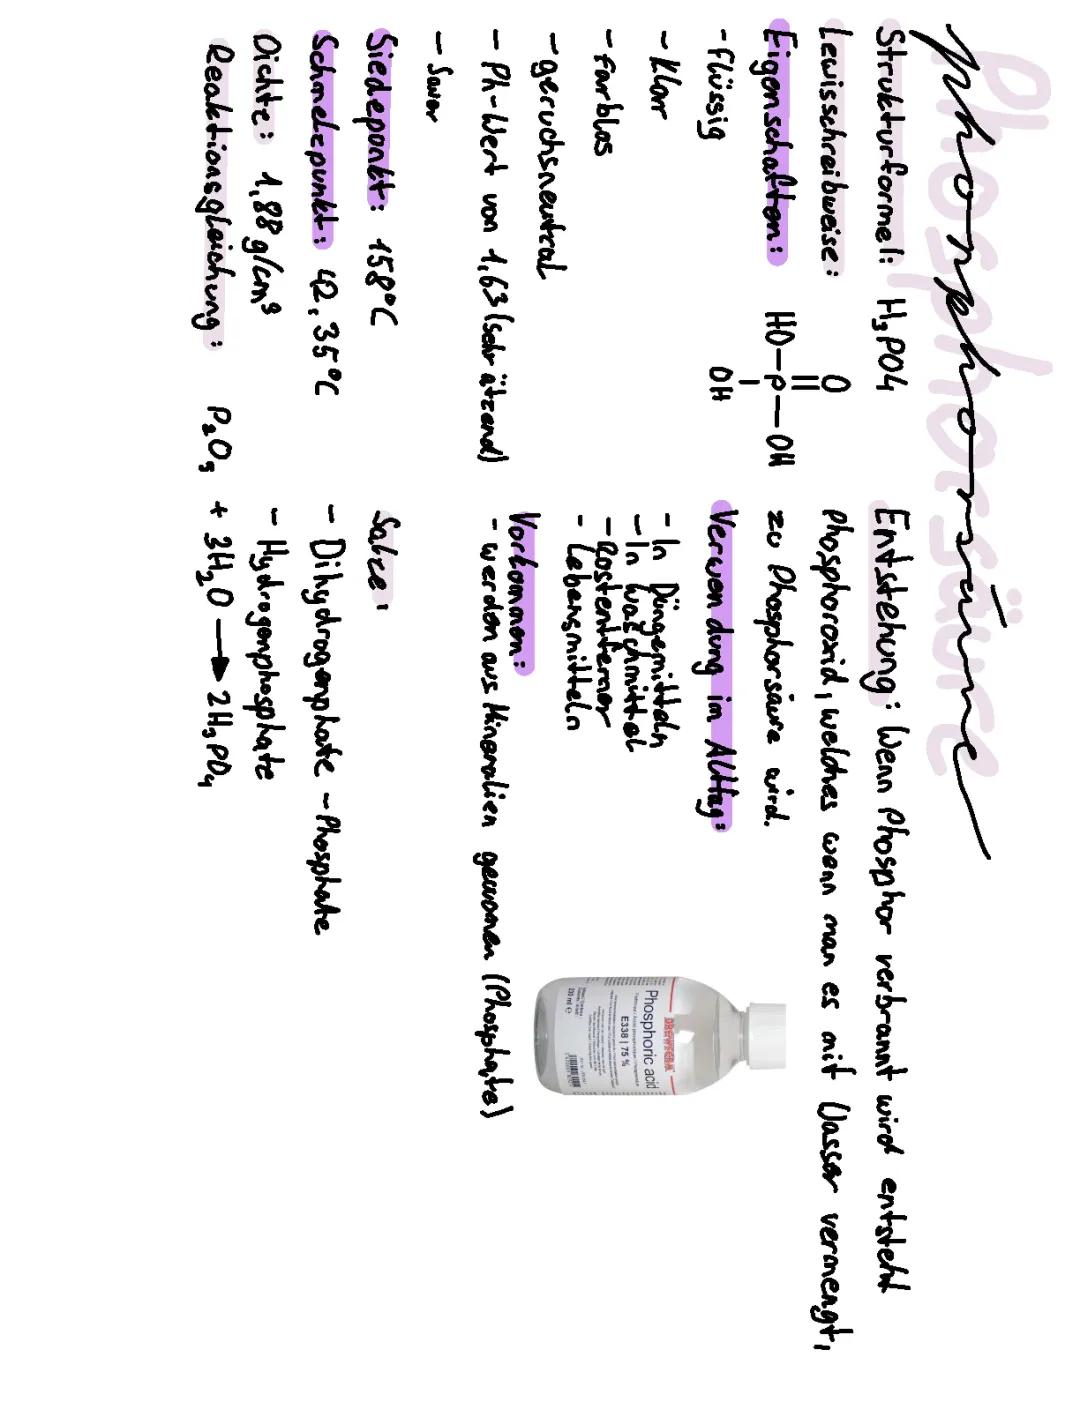 Phosphorsäure
Phosphorsäure
Strukturformel: H₃PO4
Lewisschreibweise:
O
HO-P-OH
OH
Eigenschaften:
- flüssig
- klar
- farblos
- geruchsneutral
- Ph-Wert von 1,63 (sehr ätzend)
- Sauer
Siedepunkt: 158°C
Schmelzpunkt: 42,35°C
Dichte: 1,88 g/cm³
Reaktionsgleichung: P₂O₅ + 3H₂O → 2H₃PO₄
Entstehung: Wenn Phosphor verbrannt wird entsteht
Phosphoroxid, welches wenn man es mit Wasser vermengt,
zu Phosphorsäure wird.
Verwendung im Alltag:
- In Düngemitteln
- In Waschmittel
- Rostentferner
- Lebensmitteln
Vorkommen:
- werden aus Mineralien gewonnen (Phosphate)
Salze:
- Dihydrogenphate - Phosphate
- Hydrogenphosphate
Phosphoric acid
E338 | 75 %
250 ml e